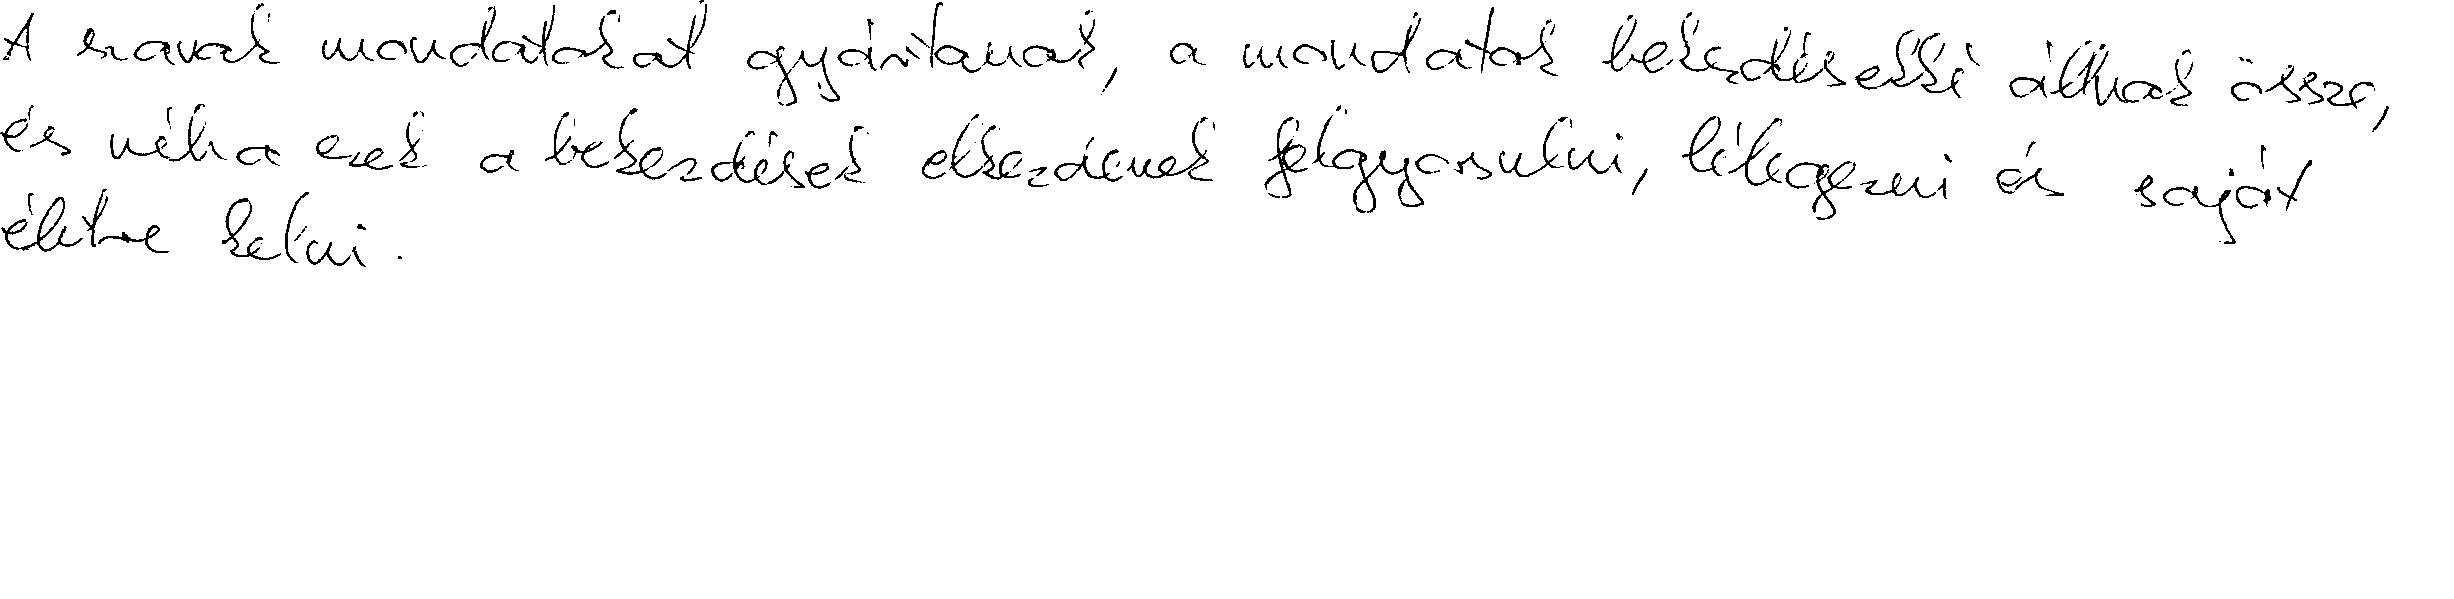 A szavak mondatokat gyártanak, a mondatok bekezdésekké állnak össze,
és néha ezek a bekezdések elkezdenek felgyorsulni, lélegezni és saját
életre kelni.